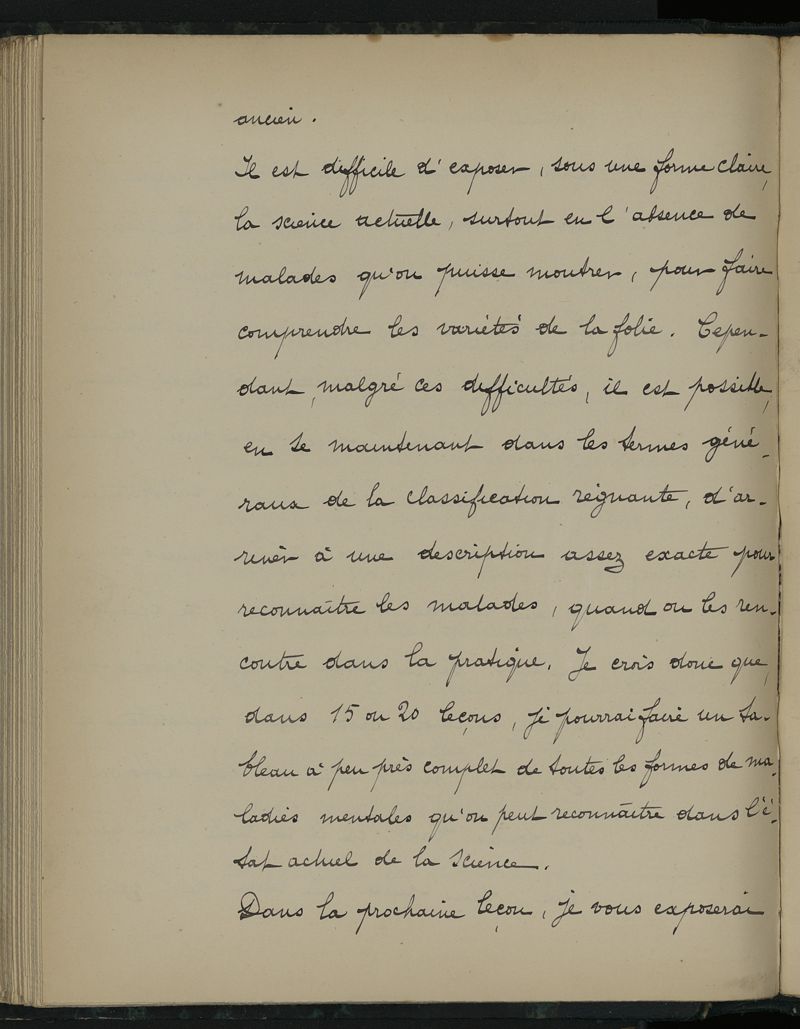 ancien.
Il est difficile d'exposer, sous une forme claire,
la science actuelle, surtout en l'absence de
malades qu'on puisse montrer, pour faire
comprendre les variétés de la folie. Cepen-
dant, malgré ces difficultés, il est possible,
en se maintenant dans les termes géné-
raux de la classification régnante, d'ar-
river à une description assez exacte pour
reconnaître les malades, quand on les ren-
contre dans la pratique. Je crois donc que,
dans 15 ou 20 leçons, je pourrai faire un ta-
bleau à peu près complet de toutes les formes de ma-
ladies mentales qu'on peut reconnaître dans l'é-
tat actuel de la science.
Dans la prochaine leçon, je vous exposerai